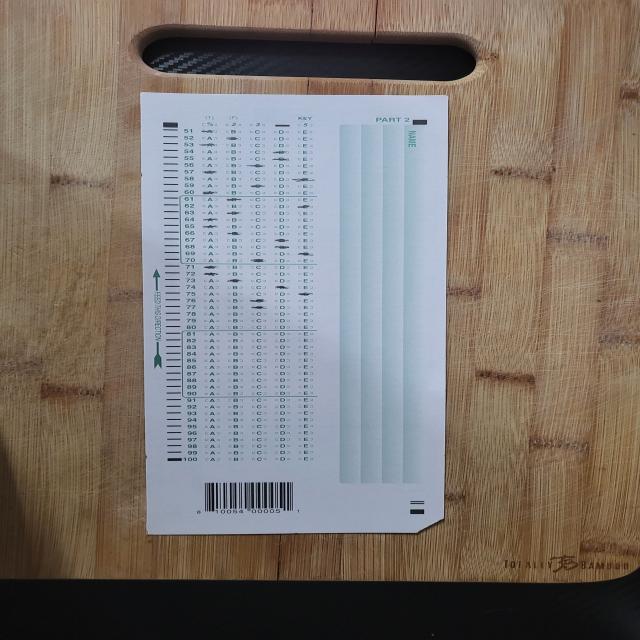 (T) (F) KEY
PART 2
NAME
51 A B C D E
52 A B C D E
53 A B C D E
54 A B C D E
55 A B C D E
56 A B C D E
57 A B C D E
58 A B C D E
59 A B C D E
60 A B C D E
61 A B C D E
62 A B C D E
63 A B C D E
64 A B C D E
65 A B C D E
66 A B C D E
67 A B C D E
68 A B C D E
69 A B C D E
70 A B C D E
71 A B C D E
72 A B C D E
73 A B C D E
74 A B C D E
75 A B C D E
76 A B C D E
77 A B C D E
78 A B C D E
79 A B C D E
80 A B C D E
81 A B C D E
82 A B C D E
83 A B C D E
84 A B C D E
85 A B C D E
86 A B C D E
87 A B C D E
88 A B C D E
89 A B C D E
90 A B C D E
91 A B C D E
92 A B C D E
93 A B C D E
94 A B C D E
95 A B C D E
96 A B C D E
97 A B C D E
98 A B C D E
99 A B C D E
100 A B C D E
FEED THIS DIRECTION
8 10054 00005 1
TOTALLY BAMBOO